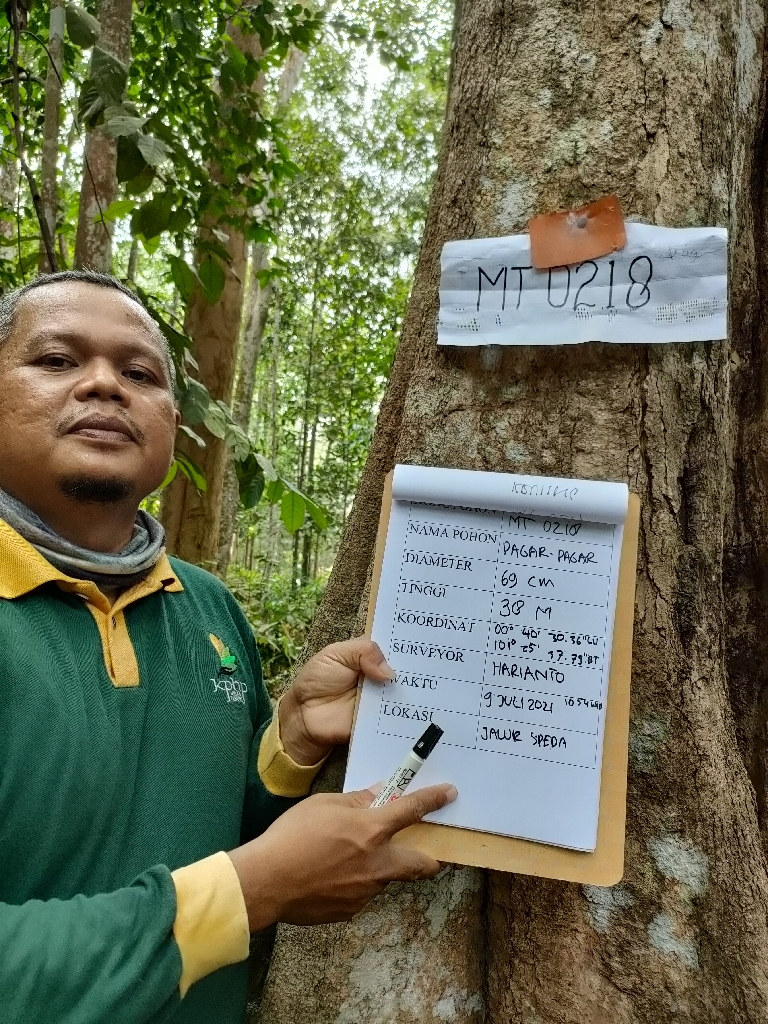 MT 0218
MT 0218
NAMA POHON PAGAR-PAGAR
DIAMETER 69 CM
TINGGI 38 M
KOORDINAT 00° 40' 30.36"LU
101° 25' 37.79"BT
SURVEYOR HARIANTO
WAKTU 9 JULI 2021
LOKASI JALUR SPEDA